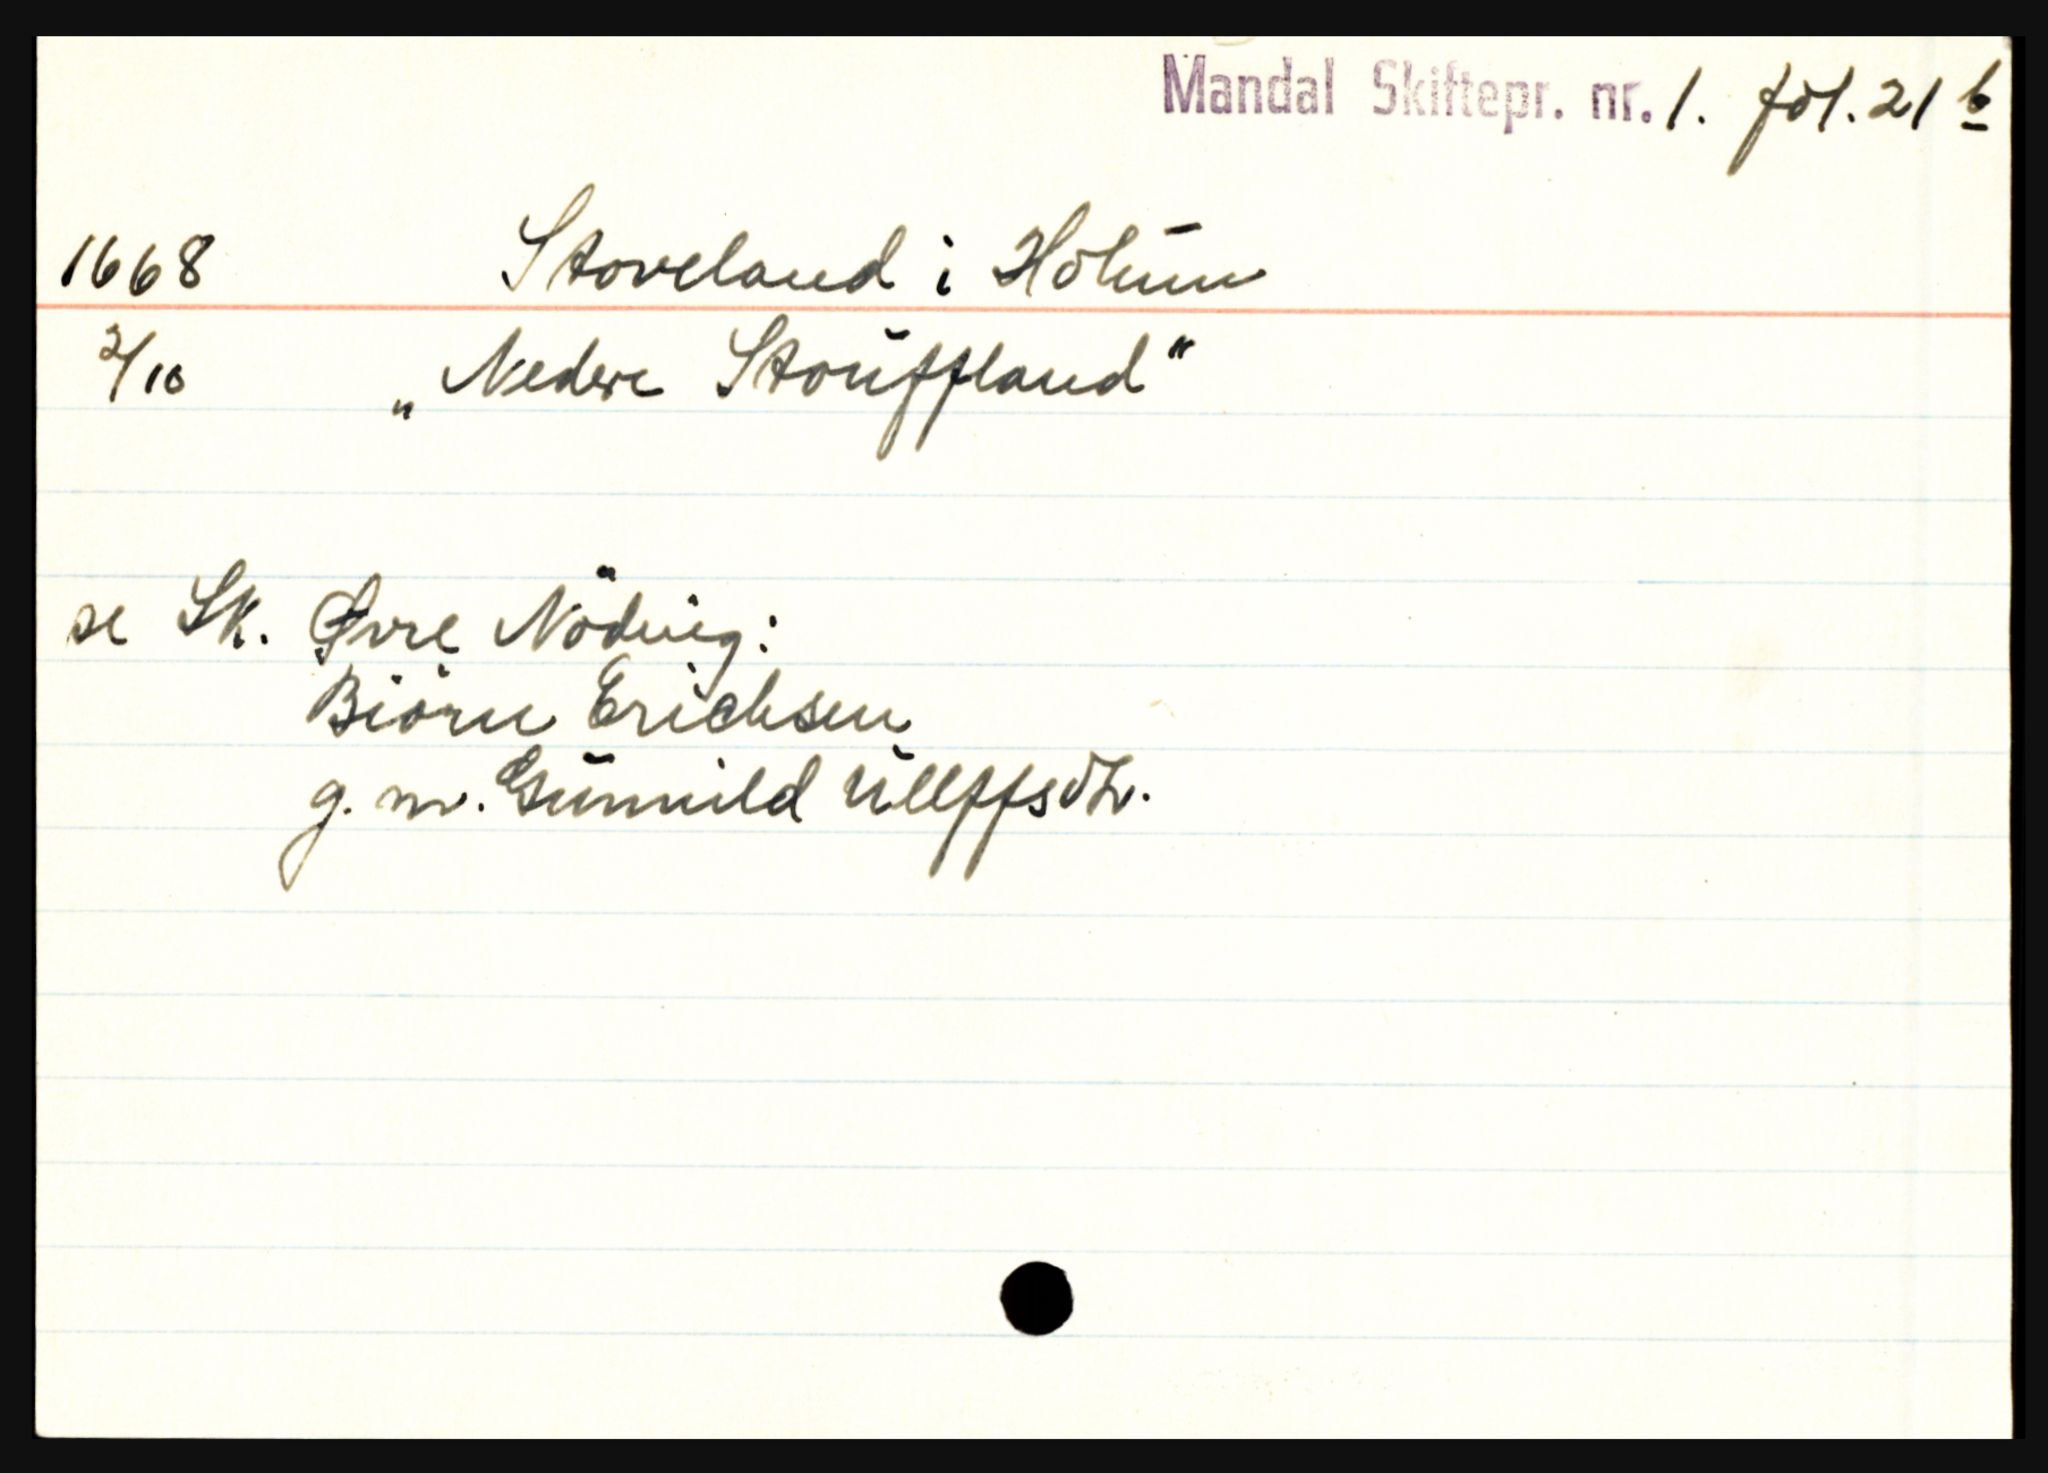 Mandal Skiftepr. nr. 1. fol. 21 b
1668 Stoveland i Holum
2/10 „Nedere Stouffland“
se Sk. Øvre Nöding:
Biörn Erichsen
g. m. Gunnild Ullffsdtr.